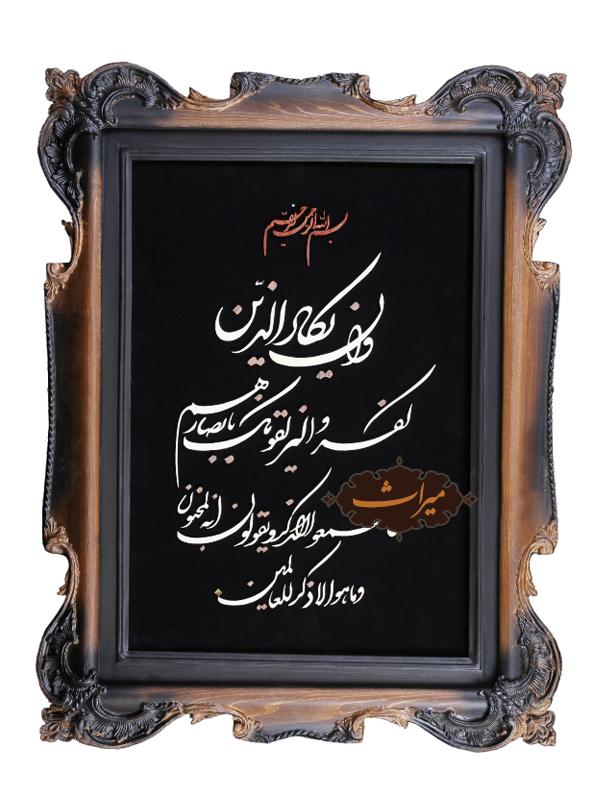 بسم الله الرحمن الرحیم
وان یکاد الذین
کفروا لیزلقونک بابصارهم
سمعوا الذکر و یقولون انه لمجنون
میراث
وما هو الا ذکر للعالمین